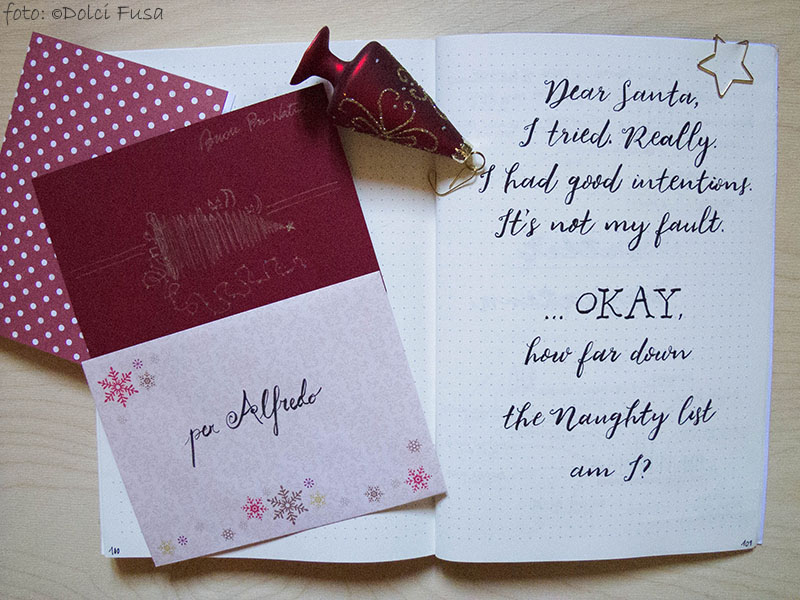 foto: ©Dolci Fusa
per Alfredo
Dear Santa,
I tried. Really.
I had good intentions.
It's not my fault.
... OKAY,
how far down
the Naughty list
am I?
100
101